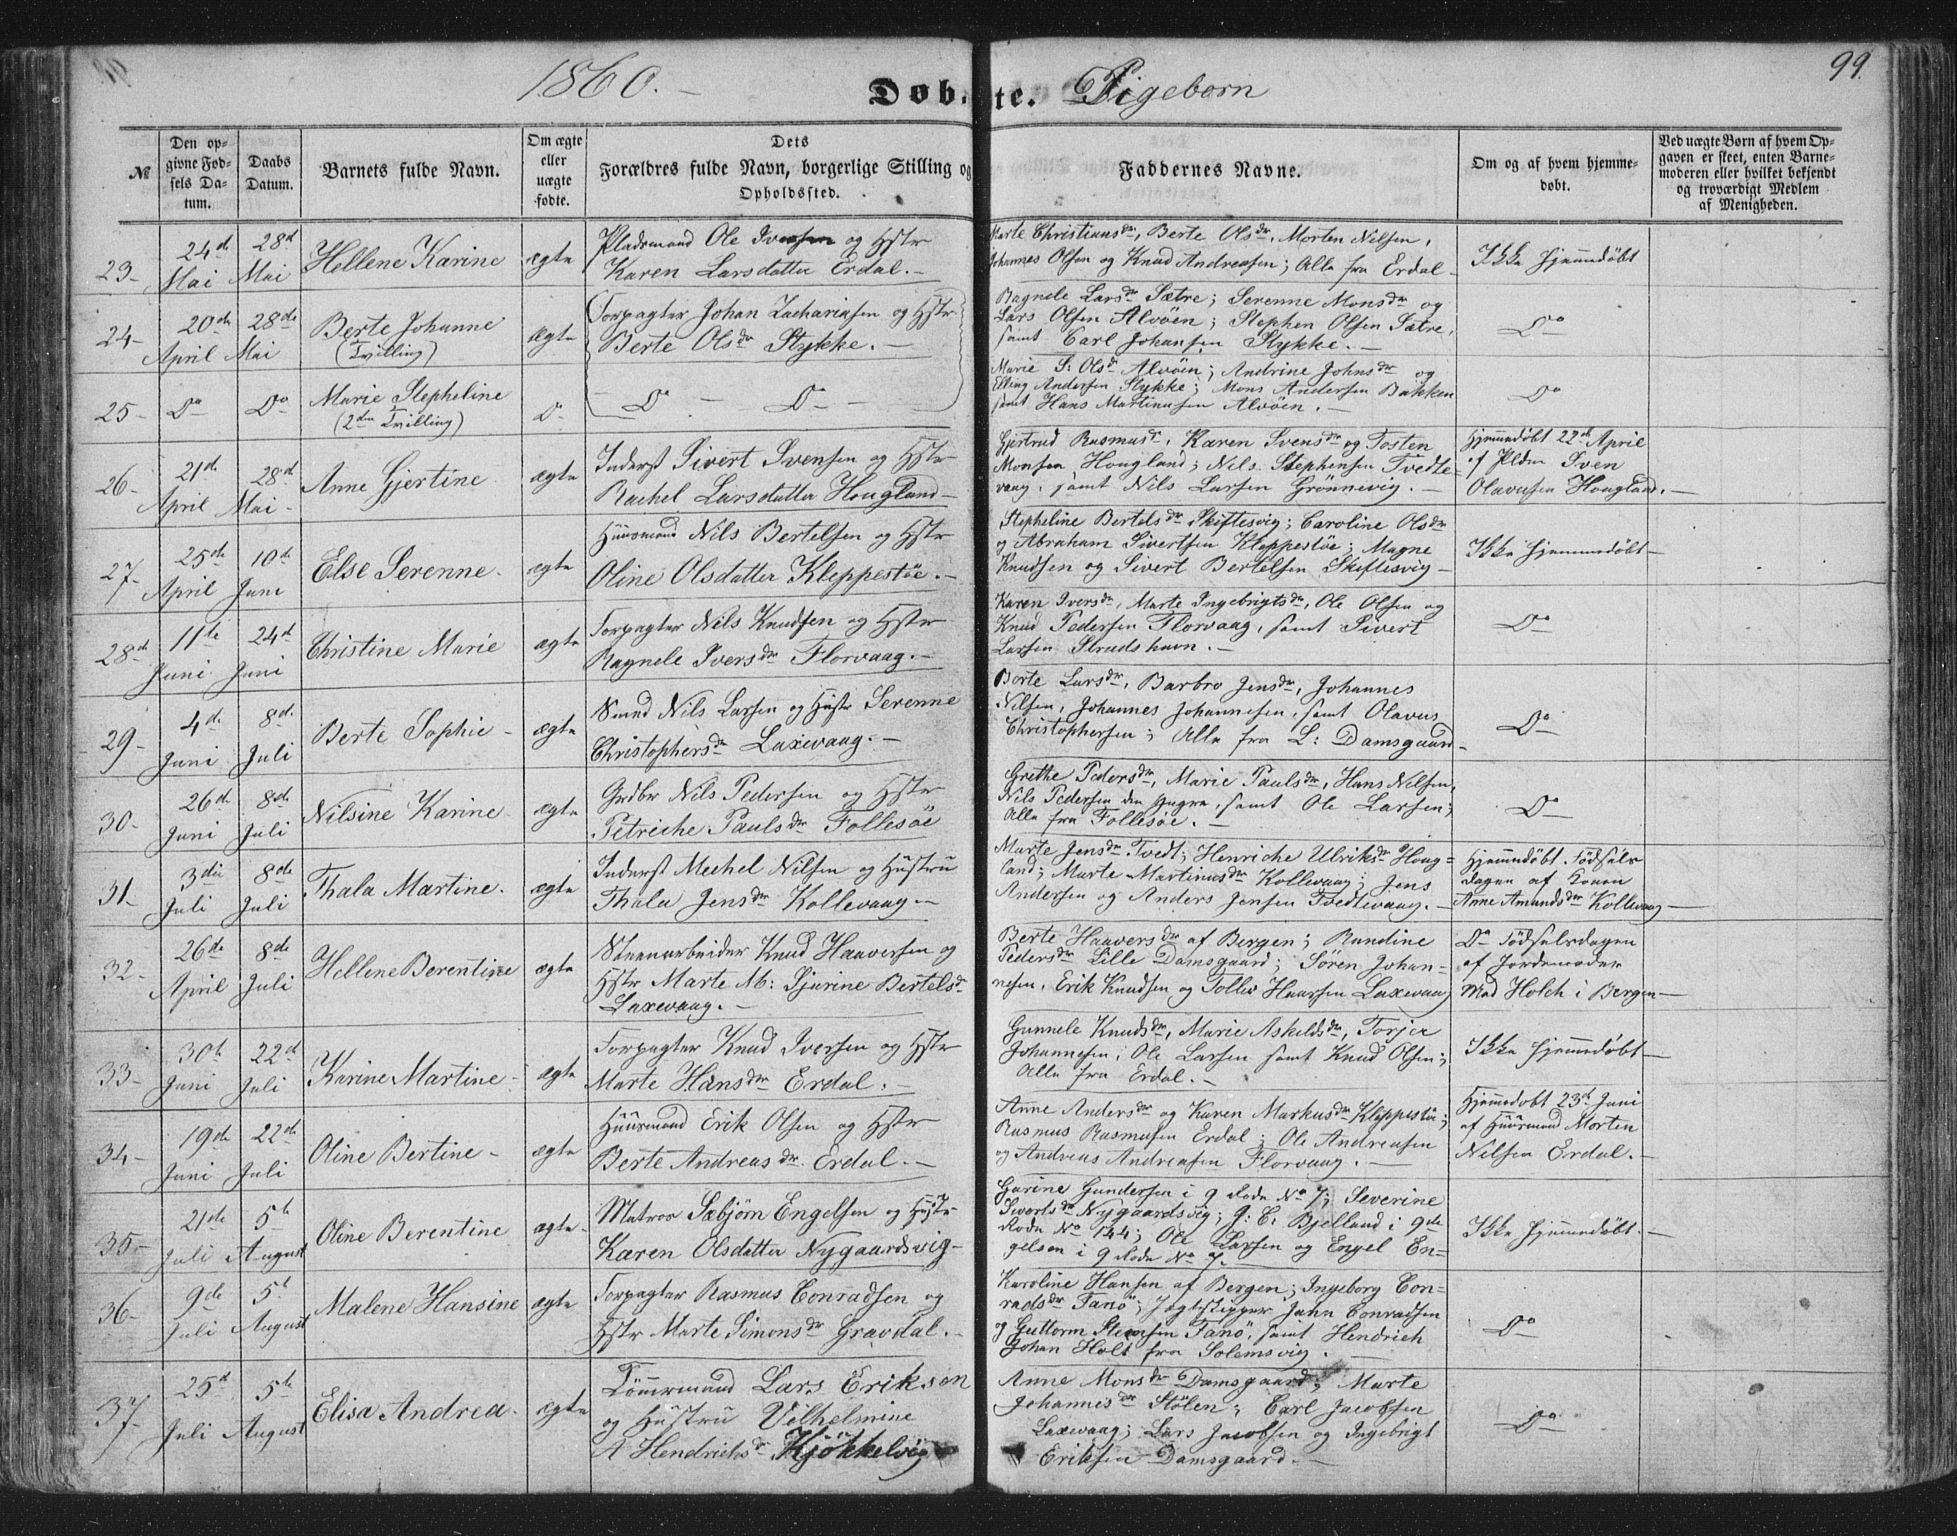 1860.
Døbte. Pigebørn
99.
№
Den op-
givne Fød-
sels Da-
tum.
Daabs
Datum.
Barnets fulde Navn.
Om ægte
eller
uægte
fødte.
Dets
Forældres fulde Navn, borgerlige Stilling og
Opholdssted.
Faddernes Navne.
Om og af hvem hjemme-
døbt.
Ved uægte Børn af hvem Op-
gaven er skeet, enten Barne-
moderen eller hvilket bekjendt
og troværdigt Medlem
af Menigheden.
23-
24d Mai
28d Mai
Hellene Karine
ægte
Pladsmand Ole Iversen og Hstr
Karen Larsdatter Erdal.-
Marte Christiansdr, Berte Olsdr, Morten Nilsen,
Johannes Olsen og Knud Andreasen; Alle fra Erdal-
Ikke hjemmedøbt
24-
20de April
28de Mai
Berte Johanne
(Tvilling)
ægte
Forpagter Johan Zachariasen og Hstr
Berte Olsdr Stykke.-
Ragnele Larsdr Sætre; Serenne Monsdr og
Lars Olsen Alvøen; Stephen Olsen Sætre,
samt Carl Johansen Stykke.-
Do
25-
Do
Do
Marie Stepheline
(2den Tvilling)
Do
Do - Do -
Marie S: Olsdr Alvøen; Andrine Johnsdr og
Elling Andersen Stykke; Mons Andersen Bakken
samt Hans Martinusen Alvøen.-
Do
26-
21de April
28de Mai-
Anne Gjertine
ægte
Inderst Sivert Svensen og Hstr
Rachel Larsdatter Hougland-
Gjertrud Rasmusdr, Karen Svensdr og Tosten
Monsen Hougland; Nils Stephensen Tvedte-
vaag, samt Nils Larsen Grønnevig.-
Hjemmedøbt 22de April
af Pldm Sven
Olavusen Hougland.-
27-
25de April
10de Juni
Else Serenne-
ægte
Huusmand Nils Bertelsen og Hstr
Oline Olsdatter Kleppestøe.-
Stepheline Bertelsdr Skiftesvig; Caroline Olsdr
og Abraham Sivertsen Kleppestøe; Magne
Knudsen og Sivert Bertelsen Skiftesvig-
Ikke hjemmedøbt-
28d
11te Juni
24d Juni
Christine Marie
ægte
Forpagter Nils Knudsen og Hstr
Ragnele Iversdr Florvaag.-
Karen Iversdr, Marte Ingebrigtsdr, Ole Olsen og
Knud Pedersen Florvaag, samt Sivert
Larsen Strudshavn.-
Do
29-
4de Juni
8de Juli
Berte Sophie-
ægte
Smed Nils Larsen og Hustr Serenne
Christophersdr Laxevaag.-
Berte Larsdr, Barbro Jensdr, Johannes
Nilsen, Johannes Johannesen, samt Olavus
Christophersen; Alle fra L: Damsgaard-
Do
30-
26de Juni
8de Juli
Nilsine Karine
ægte
Grdbr Nils Pedersen og Hstr
Petriche Paulsdr Follesøe
Grethe Pedersdr, Marie Paulsdr, Hans Nilsen,
Nils Pedersen den Yngre, samt Ole Larsen;
Alle fra Follesøe.-
Do
31-
3die Juli
8de Juli
Thala Martine-
ægte
Inderst Mechel Nilsen og Hustru
Thala Jensdr Kollevaag-
Marte Jensdr Tvedt; Henriche Ulriksdr Houg-
land; Marte Martinusdr Kollevaag; Jens
Andersen og Anders Jensen Tvedtevaag.-
Hjemmedøbt Fødsels
dagen af Konen
Anne Amundsdr Kollevaag-
32-
26de April
8de Juli
Hellene Berentine
ægte
Steenarbeider Knud Haaversen og
Hstr Marte M: Sjurine Bertelsdr
Laxevaag.-
Berte Haaversdr af Bergen; Randine
Pedersdr Lille Damsgaard; Søren Johan-
nesen, Erik Knudsen og Tollev Haarsen Laxevaag
Do Fødselsdagen
af Jordemoder
Mad Holck i Bergen-
33-
30te Juni
22de Juli
Karine Martine-
ægte
Forpagter Knud Iversen og Hstr
Marte Hansdr Erdal.-
Gunnele Knudsdr, Marie Askeldsdr, Torjer
Johannesen; Ole Larsen samt Knud Olsen;
Alle fra Erdal.-
Ikke hjemmedøbt-
34-
19de Juni
22de Juli
Oline Bertine-
ægte
Huusmand Erik Olsen og Hstr
Berte Andreasdr Erdal.-
Anne Andersdr og Karen Markusdr Kleppestøe;
Rasmus Rasmusen Erdal; Ole Andreasen
og Andreas Andreasen Florvaag.-
Hjemmedøbt 23de Juni
af Huusmand Morten
Nilsen Erdal.-
35-
21de Juli
5te August
Oline Berentine
ægte-
Matros Sæbjørn Engelsen og Hustr
Karen Olsdatter Nygaardsvig-
Gurine Gundersen i 9 Rode No 7; Severine
Sivertsdr Nygaardsvig; J. C. Bjelland i 9de
Rode No 144; Ole Larsen og Engel En-
gelsen i 9 Rode No 7.
Ikke hjemmedøbt.-
36-
9de Juli
5te August
Malene Hansine
ægte
Forpagter Rasmus Conradsen og
Hstr Marte Simonsdr Gravdal.-
Karoline Hansen af Bergen; Ingeborg Con-
radsdr Fanø; Jagtskipper John Conradsen
og Guttorm Steensen Fanø, samt Hendrich
Johan Holt fra Solemsvig.-
Do
37-
25d Juli
5te August
Elisa Andrea-
ægte
Tømmermand Lars Erikson
og Hustru Vilhelmine
A Hendrichsdr Kjøkkelvig
Anne Monsdr Damsgaard; Marte
Johannesdr Stølen; Carl Jacobsen
Laxevaag; Lars Jacobsen og Ingebrigt
Eriksen Damsgaard.-
Do